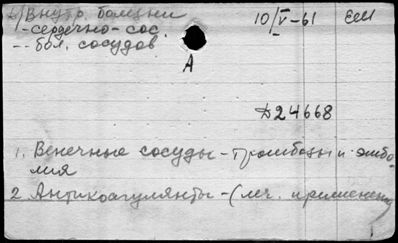 Внутр. болезни 10/V-61 ЕМ
-сердечно-сос.
-- бол. сосудов
А
Д24668
1. Венечные сосуды - тромбозы и эмбо-
лия
2 Антикоагулянты - (леч. применение)